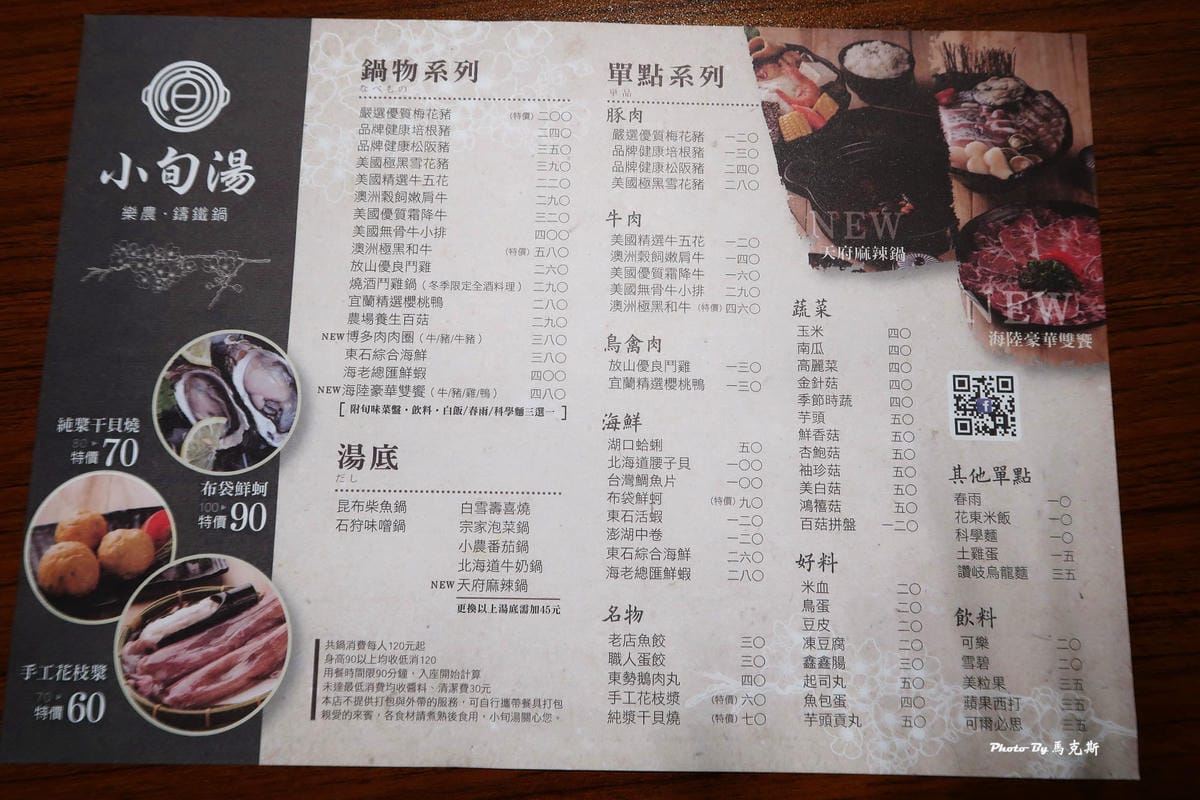 小旬湯
樂農・鑄鐵鍋
純漿干貝燒
80 ▸ 特價 70
布袋鮮蚵
100 ▸ 特價 90
手工花枝漿
70 ▸ 特價 60
鍋物系列
なべもの
嚴選優質梅花豬 (特價) 二〇〇
品牌健康培根豬 二四〇
品牌健康松阪豬 三五〇
美國極黑雪花豬 三九〇
美國精選牛五花 二二〇
澳洲穀飼嫩肩牛 二九〇
美國優質霜降牛 三二〇
美國無骨牛小排 四〇〇
澳洲極黑和牛 (特價) 五八〇
放山優良鬥雞 二六〇
燒酒鬥雞鍋 (冬季限定全酒料理) 二九〇
宜蘭精選櫻桃鴨 二八〇
農場養生百菇 二九〇
NEW 博多肉肉圈 (牛/豬/牛豬) 三八〇
東石綜合海鮮 三八〇
海老總匯鮮蝦 四〇〇
NEW 海陸豪華雙饗 (牛/豬/雞/鴨) 四八〇
[ 附旬味菜盤・飲料・白飯/春雨/科學麵三選一 ]
湯底
だし
昆布柴魚鍋
石狩味噌鍋
白雪壽喜燒
宗家泡菜鍋
小農番茄鍋
北海道牛奶鍋
NEW 天府麻辣鍋
更換以上湯底需加45元
共鍋消費每人120元起
身高90以上均收低消120
用餐時間限90分鐘，入座開始計算
未達最低消費均收醬料、清潔費30元
本店不提供打包與外帶的服務，可自行攜帶餐具打包
親愛的來賓，各食材請煮熟後食用，小旬湯關心您。
單點系列
単品
豚肉
嚴選優質梅花豬 一二〇
品牌健康培根豬 一三〇
品牌健康松阪豬 二四〇
美國極黑雪花豬 二八〇
牛肉
美國精選牛五花 一二〇
澳洲穀飼嫩肩牛 一四〇
美國優質霜降牛 一六〇
美國無骨牛小排 二九〇
澳洲極黑和牛 (特價) 四六〇
鳥禽肉
放山優良鬥雞 一三〇
宜蘭精選櫻桃鴨 一三〇
海鮮
湖口蛤蜊 五〇
北海道腰子貝 一〇〇
台灣鯛魚片 一〇〇
布袋鮮蚵 (特價) 九〇
東石活蝦 一二〇
澎湖中卷 一二〇
東石綜合海鮮 二六〇
海老總匯鮮蝦 二八〇
名物
老店魚餃 三〇
職人蛋餃 三〇
東勢鵝肉丸 四〇
手工花枝漿 (特價) 六〇
純漿干貝燒 (特價) 七〇
NEW
天府麻辣鍋
NEW
海陸豪華雙饗
蔬菜
玉米 四〇
南瓜 四〇
高麗菜 四〇
金針菇 四〇
季節時蔬 四〇
芋頭 五〇
鮮香菇 五〇
杏鮑菇 五〇
袖珍菇 五〇
美白菇 五〇
鴻禧菇 五〇
百菇拼盤 一二〇
好料
米血 二〇
鳥蛋 二〇
豆皮 二〇
凍豆腐 二〇
鑫鑫腸 三〇
起司丸 五〇
魚包蛋 四〇
芋頭貢丸 五〇
其他單點
春雨 一〇
花東米飯 一〇
科學麵 一〇
土雞蛋 一五
讚岐烏龍麵 三五
飲料
可樂 二〇
雪碧 二〇
美粒果 三五
蘋果西打 三五
可爾必思 三五
Photo By 馬克斯